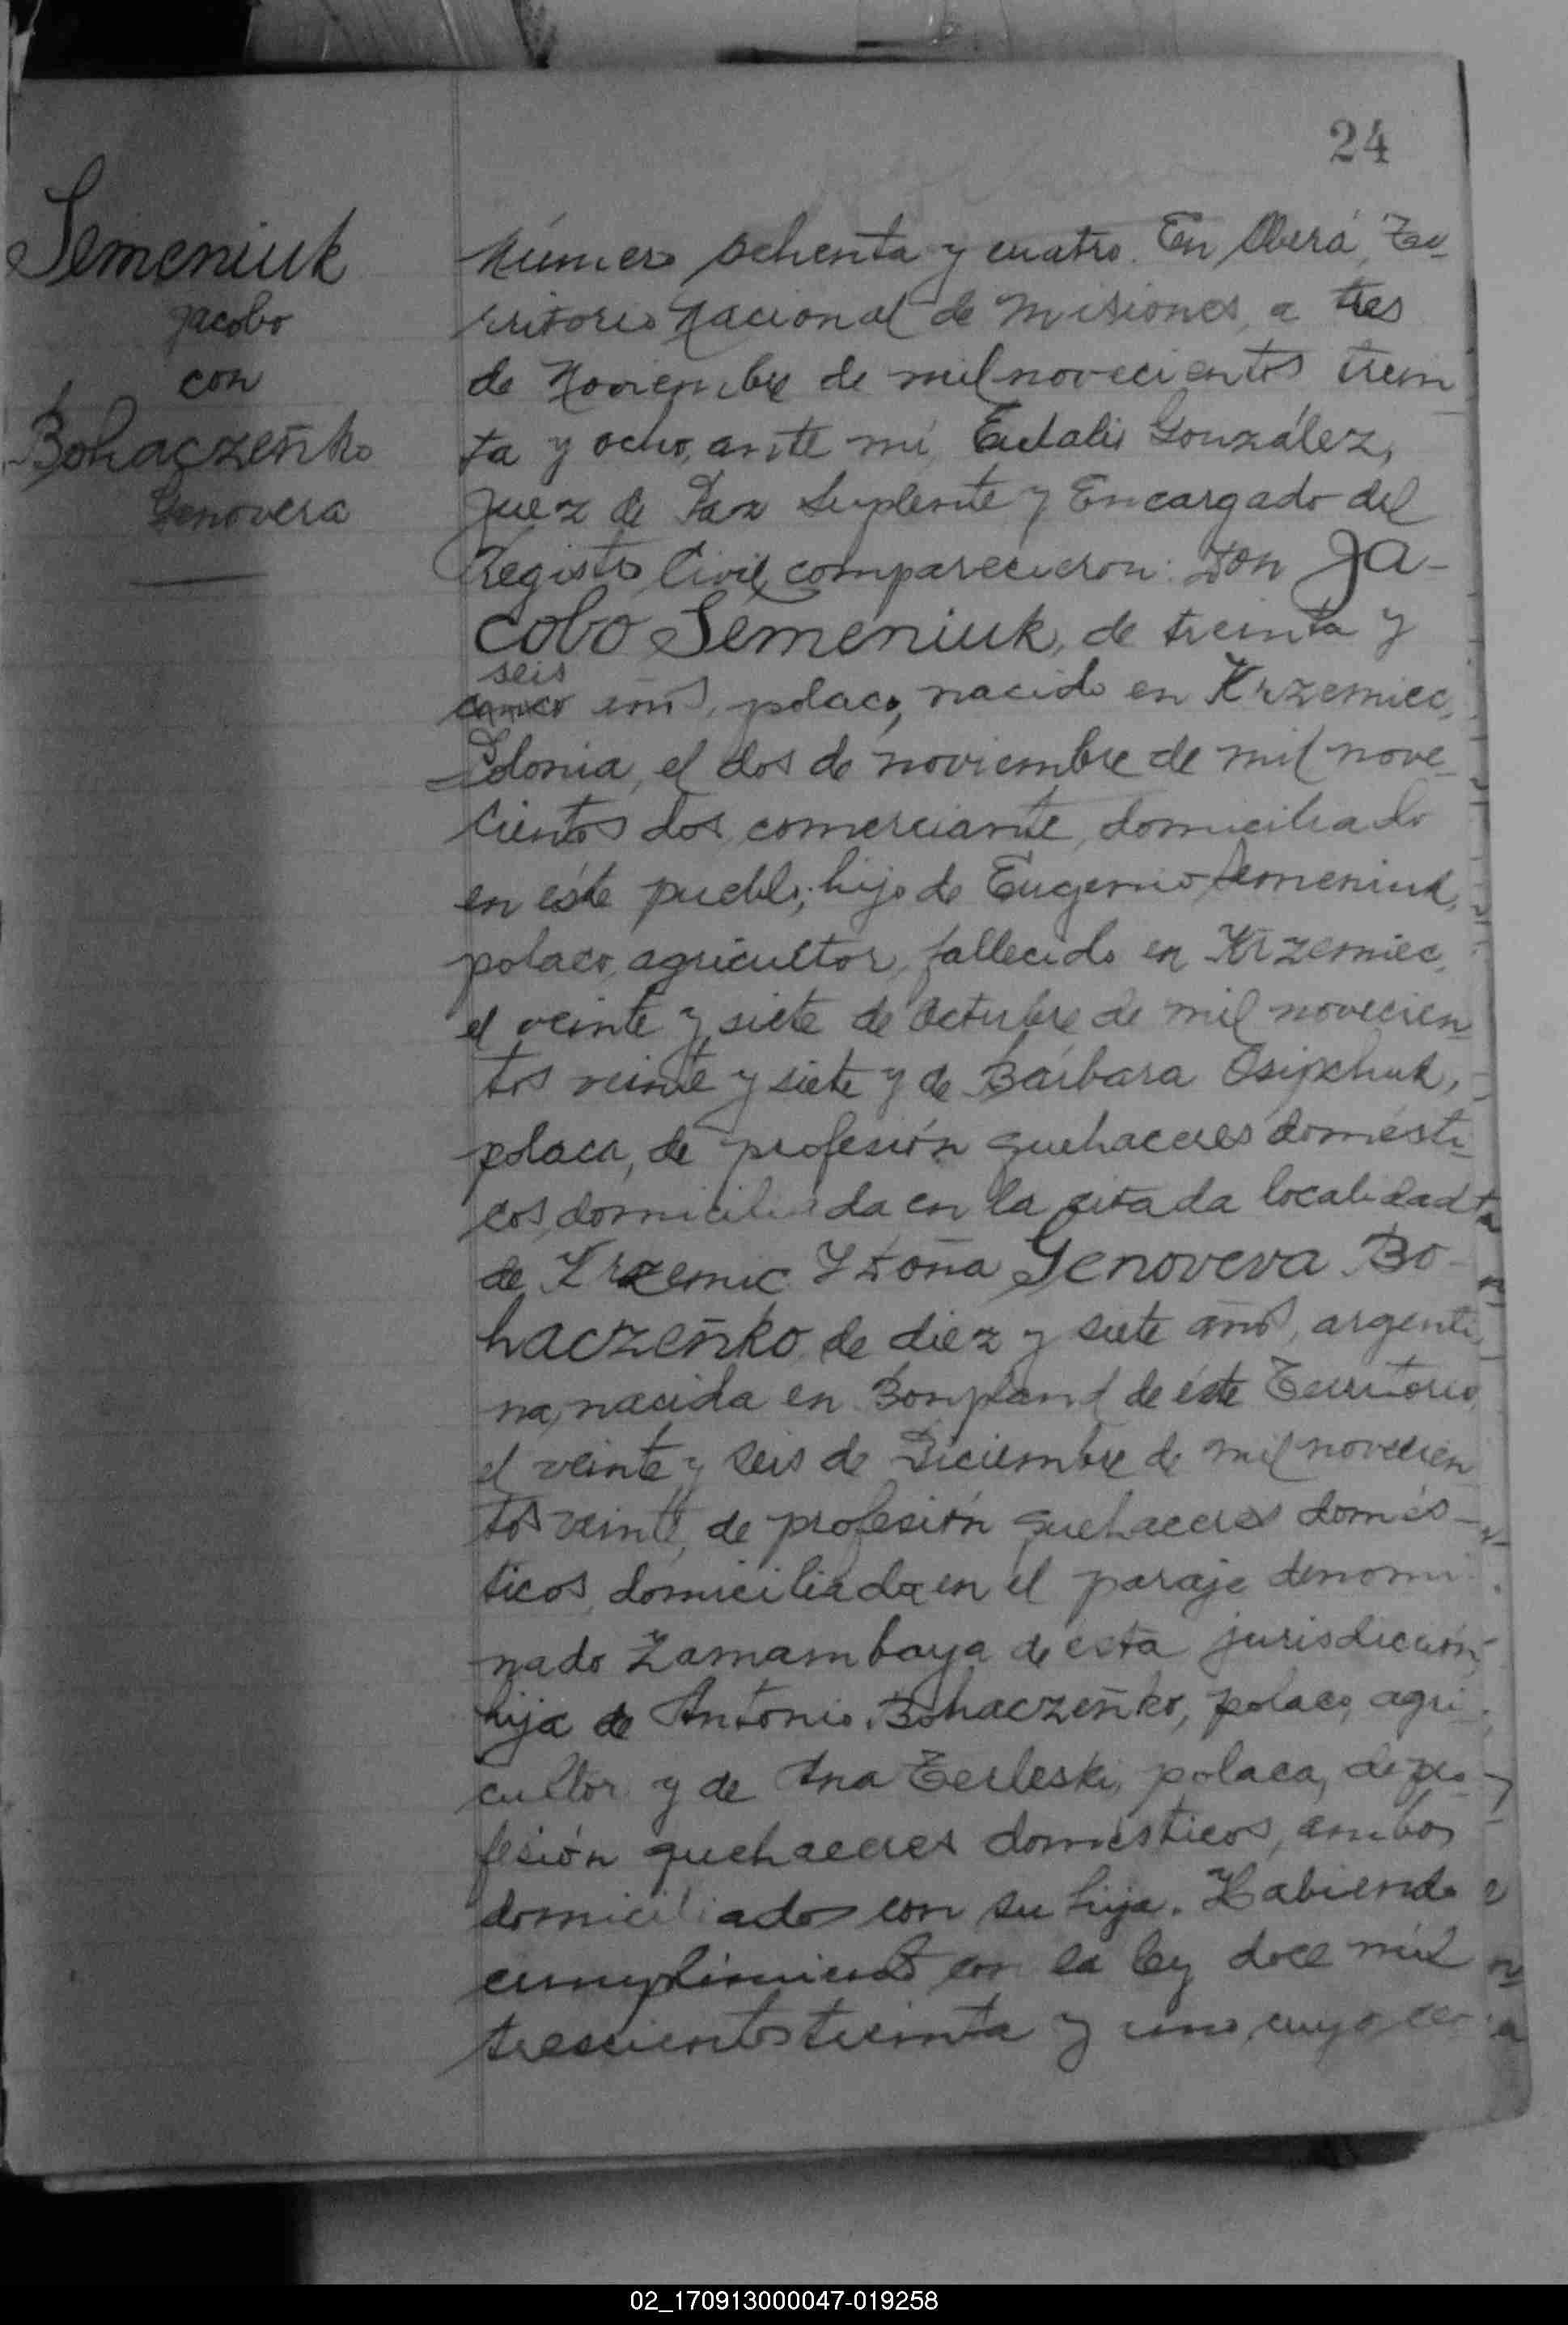 24
Semeniuk
Jacobo
con
Bohaczeñko
Genoveva
Número ochenta y cuatro. En Oberá, Te-
rritorio Nacional de Misiones, a tres
de Noviembre de mil novecientos trein
ta y ocho, ante mí, Eulalio González,
Juez de Paz Suplente y Encargado del
Registro Civil, comparecieron: Don Ja-
cobo Semeniuk, de treinta y
seis
cinco años, polaco, nacido en Krzemiec,
Polonia, el dos de noviembre de mil nove-
cientos dos, comerciante, domiciliado
en éste pueblo; hijo de Eugenio Semeniuk,
polaco, agricultor, fallecido en Krzemiec,
el veinte y siete de Octubre de mil novecien
tos veinte y siete y de Bárbara Osipchuk,
polaca, de profesión quehaceres domésti-
cos, domiciliada en la citada localidad
de Krzemic Y Doña Genoveva Bo-
haczeñko, de diez y siete años, argenti
na, nacida en Bonpland de éste Territorio,
el veinte y seis de Diciembre de mil novecien
tos veinte, de profesión quehaceres domés-
ticos, domiciliada en el paraje denomi
nado Zamambaya de ésta jurisdicción,
hija de Antonio Bohaczeñko, polaco, agri-
cultor y de Ana Terleski, polaca, de pro-
fesión quehaceres domésticos, ambos
domiciliados con su hija. Habiendo
cumplimiento con la ley doce mil
trescientos treinta y uno, cuyo cer
02_170913000047-019258